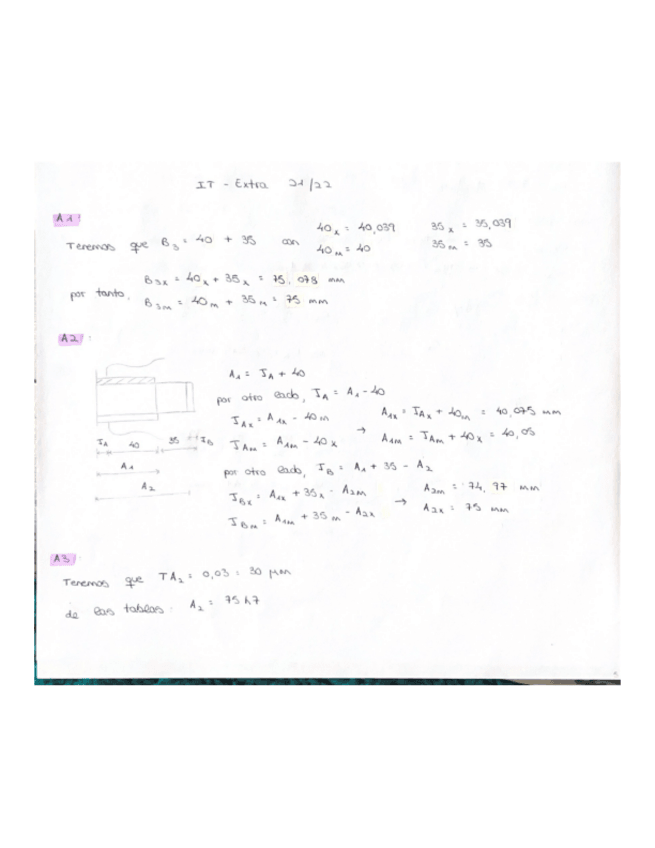 IT - Extra 21/22
A1:
Tenemos que B₃ = 40 + 35 con 40ₓ = 40,039 35ₓ = 35,039
40ₘ = 40 35ₘ = 35
por tanto, B₃ₓ = 40ₓ + 35ₓ = 75,078 mm
B₃ₘ = 40ₘ + 35ₘ = 75 mm
A2:
A₁ = J_A + 40
por otro lado, J_A = A₁ - 40
J_Ax = A₁ₓ - 40ₘ → A₁ₓ = J_Ax + 40ₘ = 40,075 mm
J_Am = A₁ₘ - 40ₓ A₁ₘ = J_Am + 40ₓ = 40,05
J_A 40 35 J_B
A₁
A₂
por otro lado, J_B = A₁ + 35 - A₂
J_Bx = A₁ₓ + 35ₓ - A₂ₘ → A₂ₘ = 74,97 mm
J_Bm = A₁ₘ + 35ₘ - A₂ₓ A₂ₓ = 75 mm
A3:
Tenemos que TA₂ = 0,03 = 30 μm
de las tablas: A₂ = 75h7